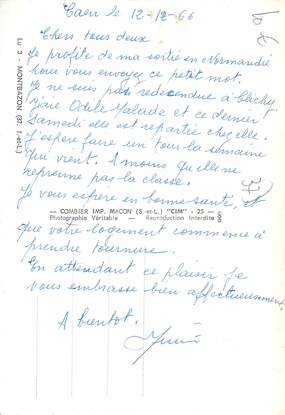 Caen le 12-12-66
Chers tous deux
Je profite de ma sortie en Normandie
pour vous envoyer ce petit mot.
Je ne suis pas redescendue à Clichy
Odile Malade et ce dernier
Samedi elle est repartie chez elle.
J'espère faire un tour la semaine
qui vient. A moins qu'elle ne
reprenne pas la classe.
Je vous espère en bonne santé, et
que votre logement commence à
prendre tournure.
En attendant ce plaisir je
vous embrasse bien affectueusement.
A bientot.
Lu 3 - MONTBAZON (37 - I.-et-L.)
— COMBIER IMP. MACON (S.-et-L.) "CIM" - 25 —
Photographie Véritable - Reproduction Interdite
37